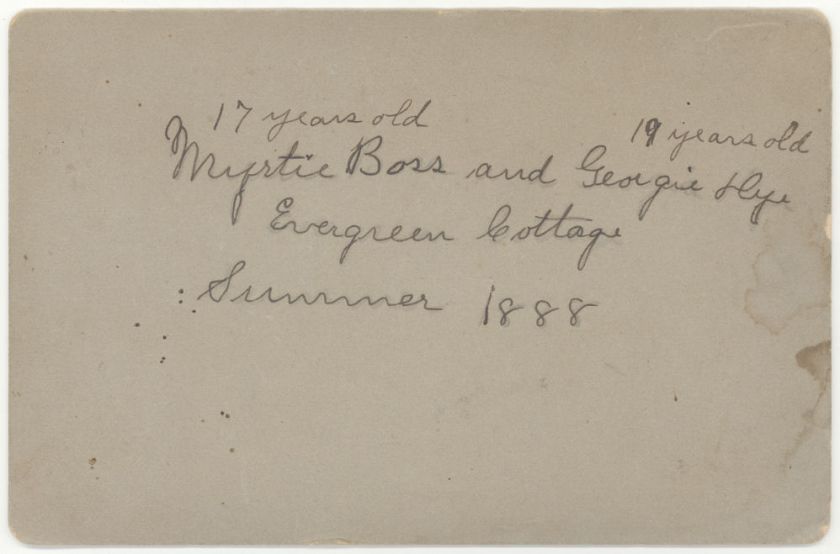 17 years old 19 years old
Myrtie Boss and Georgie
Evergreen Cottage
Summer 1888